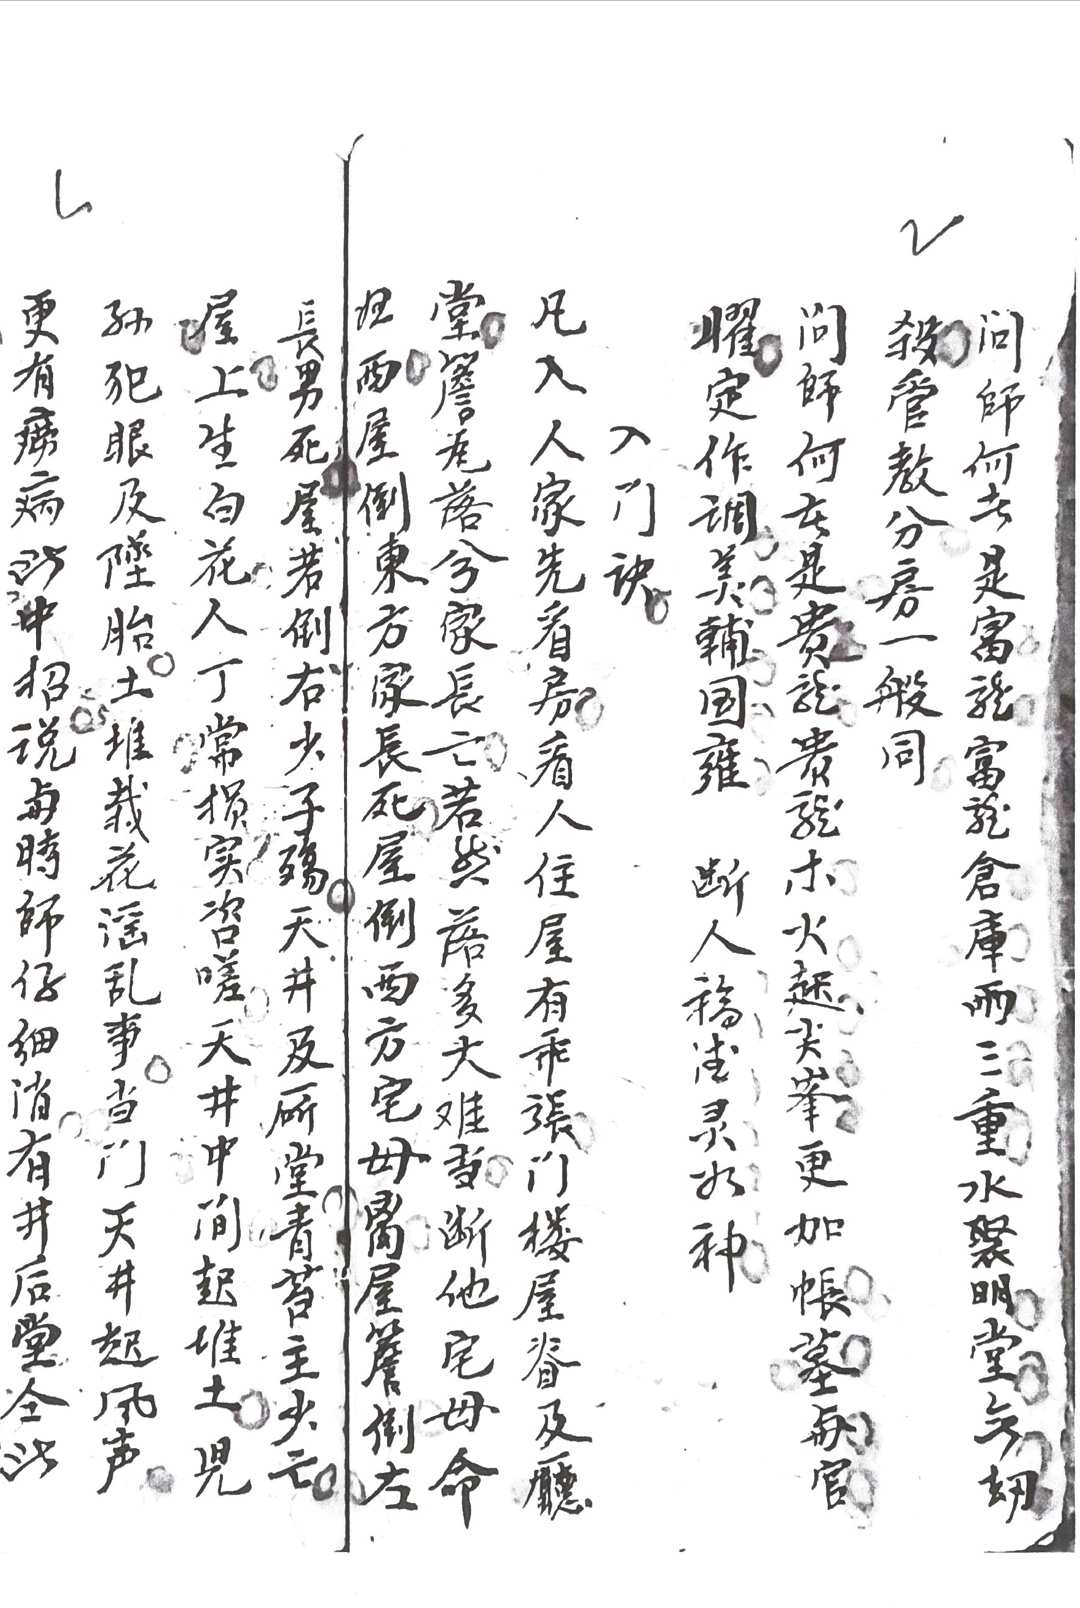 问師何者是富龍富龍倉庫两三重水聚明堂无刼
殺管教分房一般同
问師何者是贵龍贵龍木火起尖峯更加帳墓毋官
曜定作調美輔国雍　断人禍福灵如神
入门诀
凡入人家先看房看人住屋有乖張门楼屋脊及廳
堂簷尾落兮家長亡若然落多大难当断他宅母命
西屋倒東方家長死屋倒西方宅母屋簷倒左
長男死屋若倒右少子殤天井及厮堂青苔主少亡
屋上生白花人丁常损实咨嗟天井中间起堆土児
孙犯眼及墜胎土堆栽花淫乱事当门天井起风声
更有癆病此中招说与時師仔细消有井后堂仝此